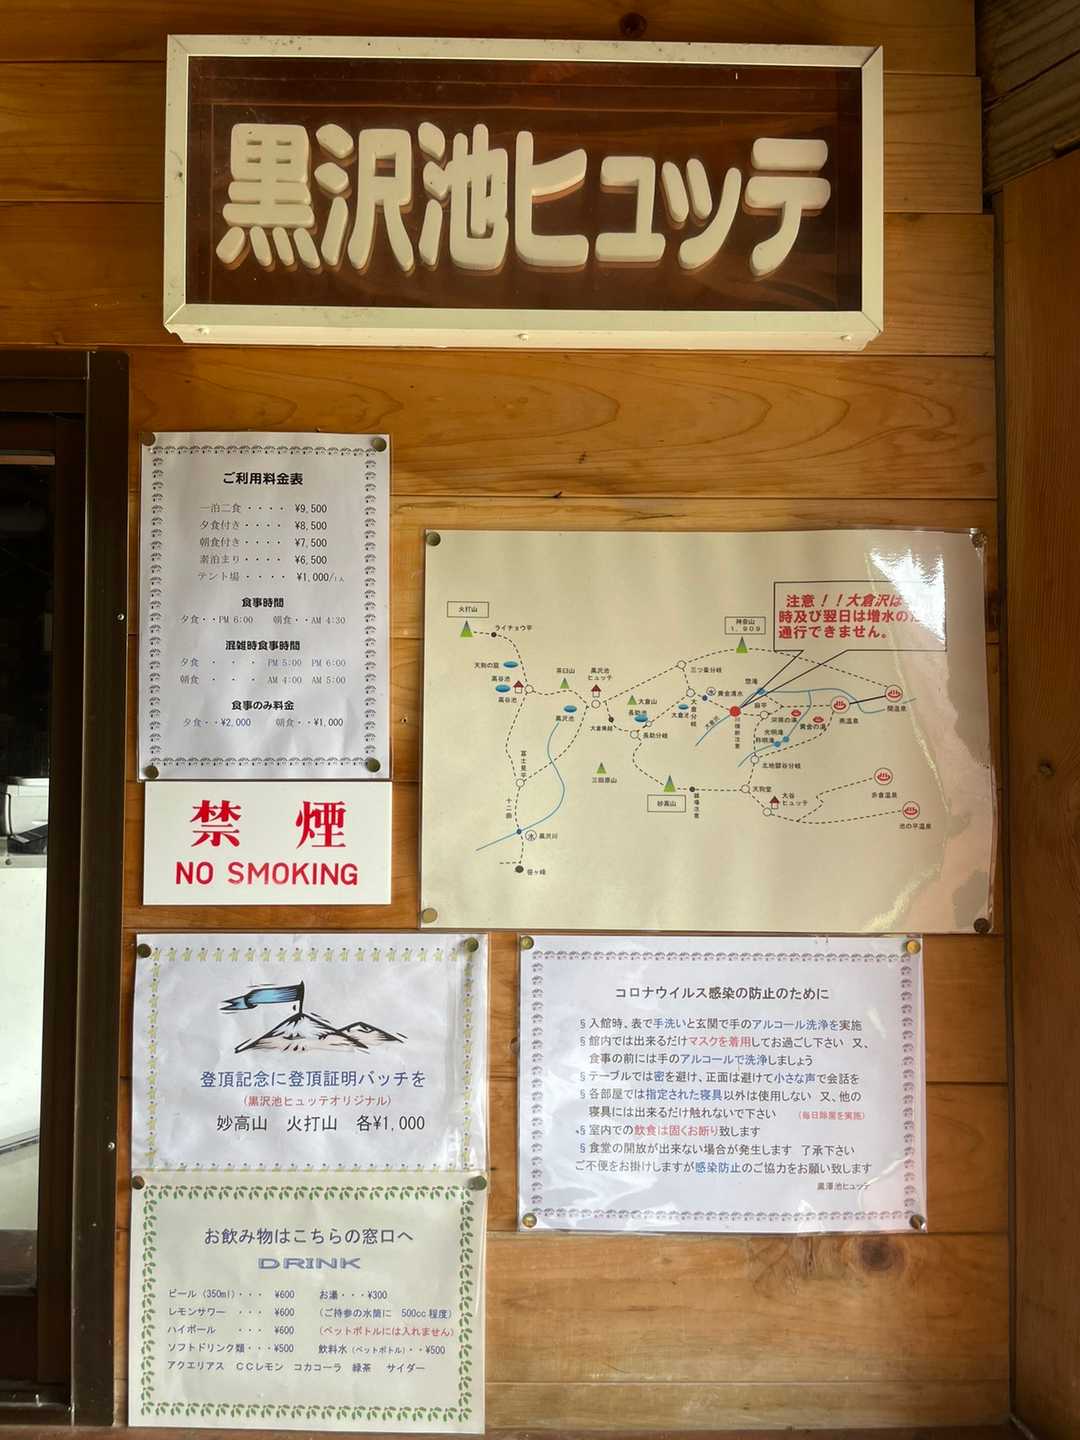 黒沢池ヒュッテ
ご利用料金表
一泊二食・・・・ ¥9,500
夕食付き・・・・ ¥8,500
朝食付き・・・・ ¥7,500
素泊まり・・・・ ¥6,500
テント場・・・・ ¥1,000/1人
食事時間
夕食・・PM 6:00 朝食・・AM 4:30
混雑時食事時間
夕食 ・ ・ ・ PM 5:00 PM 6:00
朝食 ・ ・ ・ AM 4:00 AM 5:00
食事のみ料金
夕食・・¥2,000 朝食・・¥1,000
禁煙
NO SMOKING
注意!!大倉沢は
時及び翌日は増水の
通行できません。
火打山
ライチョウ平
天狗の庭
高谷池
高谷池
茶臼山
黒沢池
ヒュッテ
黒沢池
大倉乗越
富士見平
十二曲
水
黒沢川
笹ヶ峰
大倉山
長助池
長助分岐
三田原山
妙高山
神奈山
1,909
三ツ峯分岐
大倉分岐
水
黄金清水
大倉沢
惣滝
麻平
黄金の湯
光明滝
称明滝
北地獄谷分岐
燕温泉
関温泉
天狗堂
大谷
ヒュッテ
赤倉温泉
池の平温泉
登頂記念に登頂証明バッチを
(黒沢池ヒュッテオリジナル)
妙高山 火打山 各¥1,000
コロナウイルス感染の防止のために
§入館時、表で手洗いと玄関で手のアルコール洗浄を実施
§館内では出来るだけマスクを着用してお過ごし下さい 又、
食事の前には手のアルコールで洗浄しましょう
§テーブルでは密を避け、正面は避けて小さな声で会話を
§各部屋では指定された寝具以外は使用しない 又、他の
寝具には出来るだけ触れないで下さい (毎日除菌を実施)
§室内での飲食は固くお断り致します
§食堂の開放が出来ない場合が発生します 了承下さい
ご不便をお掛けしますが感染防止のご協力をお願い致します
黒澤池ヒュッテ
お飲み物はこちらの窓口へ
DRINK
ビール(350ml)・・・ ¥600 お湯・・・¥300
レモンサワー ・・・ ¥600 (ご持参の水筒に 500cc程度)
ハイボール ・・・ ¥600 (ペットボトルには入れません)
ソフトドリンク類・・・¥500 飲料水(ペットボトル)・・¥500
アクエリアス CCレモン コカコーラ 緑茶 サイダー